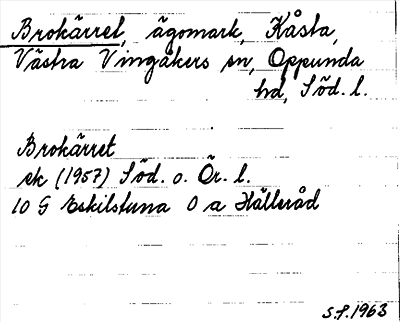 Brokärret, ägomark, Kåsta,
Västra Vingåkers sn, Oppunda
hd, Söd. l.
Brokärret
ek (1957) Söd. o. Ör. l.
10 G Eskilstuna 0 a Hälleråd
S.P. 1963